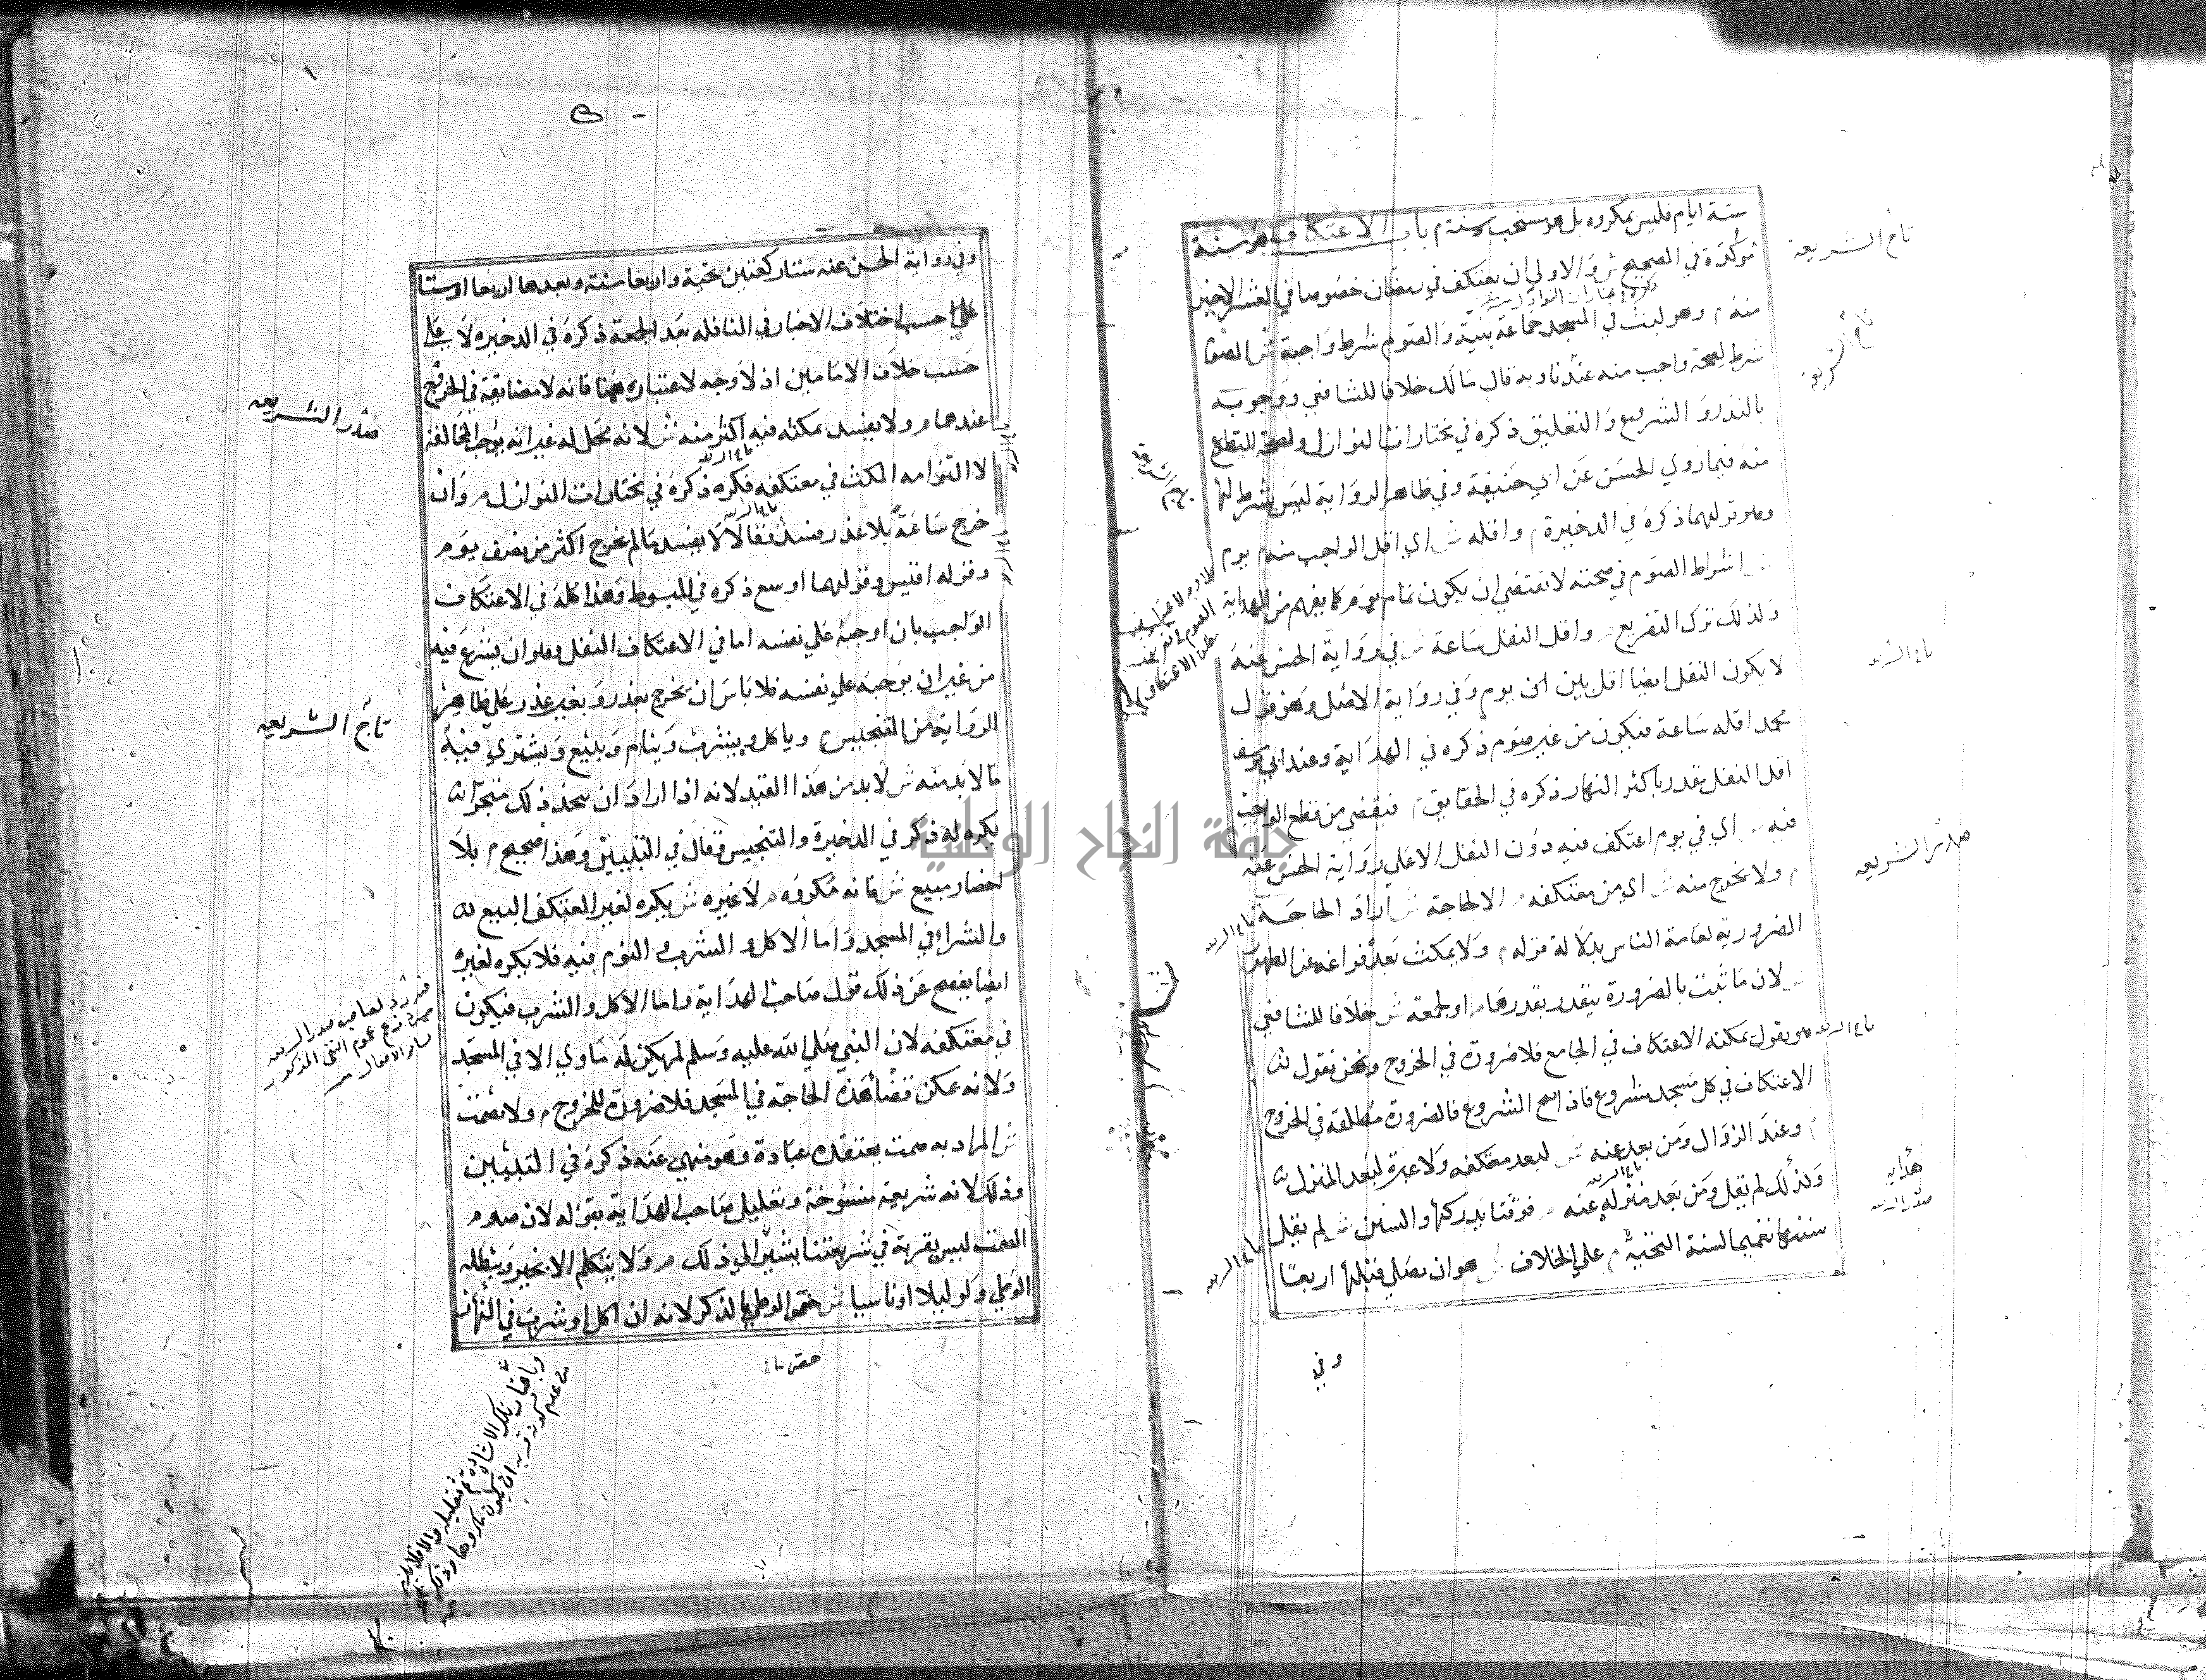 ستة ايام فليس بمكروه بل هو مستحب وسنة م باب الاعتكاف هو سنة
مؤكدة في الصحيح ش والاولى ان يعتكف في رمضان خصوصا في العشر الاخير
منه م وهو لبث في المسجد جماعة بنية والصوم شرط واجبة ش الصوم
شرط لصحة واجب منه عندنا وبه قال مالك خلافا للشافعي ووجوبه
بالنذر والشروع والتعليق ذكره في مختارات النوازل ولصحة التطوع
منه فيما روي الحسن عن ابي حنيفة وفي ظاهر الرواية ليس بشرط لها
وهو قولهما ذكره في الذخيرة م واقله ش اي اقل الواجب منه م يوم
ش اشتراط الصوم في صحته لا يقتضي ان يكون تمام يوم كما يفهم من الهداية
ولذلك ترك التفريع م واقل النفل ساعة ش في رواية الحسن عنه
لا يكون النفل ايضا اقل من يوم وفي رواية الاصل وهو قول
محمد اقله ساعة فيكون من غير صوم ذكره في الهداية وعند ابي يوسف
اقل النفل يقدر باكثر النهار ذكره في الحقايق م فيقضي من قطع الواجب
فيه ش اي في يوم اعتكف فيه دون النفل الا على رواية الحسن عنه
م ولا يخرج منه ش اي من معتكفه م الا لحاجة ش اراد الحاجة
الضرورية لعامة الناس بدلالة قوله م ولا يمكث بعد فراغه عن الطهور
ش لان ما ثبت بالضرورة يتقدر بقدرها م او لجمعة ش خلافا للشافعي
هو يقول يمكنه الاعتكاف في الجامع فلا ضرورة في الخروج ونحن نقول
الاعتكاف في كل مسجد مشروع فاذا صح الشروع فالضرورة مطلقة في الخروج
م وعند الزوال ومن بعد عنه ش لبعد معتكفه ولا عبرة لبعد المنزل
ولذلك لم يقل ومن بعد منزله عنه م فوقتا يدركها والسنن ش لم يقل
سننها تعميما لسنة التحية م على الخلاف ش هو ان يصلي قبلها اربعا
وفي
تاج الشريعة
صدر الشريعه
هدايه
وفي رواية الحسن عنه ستا ركعتين تحية واربعا سنة وبعدها اربعا او ستا
على حسب اختلاف الاخبار في النافله بعد الجمعة ذكره في الذخيره لا على
حسب خلاف الامامين اذ لا وجه لاعتباره ههنا فانه لا مضايقة في الخروج
عندهما م ولا يفسد بمكثه فيه اكثر منه ش لانه محل له غير انه يوجب المخالفة
لا التزامه المكث في معتكفه فكره ذكره في مختارات النوازل م وان
خرج ساعة بلا عذر فسد وقالا لا يفسد ما لم يخرج اكثر من نصف يوم
وقوله اقيس وقولهما اوسع ذكره في المبسوط وهذا كله في الاعتكاف
الواجب بان اوجبه على نفسه اما في الاعتكاف النفل وهو ان يشرع فيه
من غير ان يوجبه على نفسه فلا باس ان يخرج بعذر وبغير عذر على ظاهر
الرواية من التجنيس م وياكل ويشرب وينام ويبيع ويشتري فيه
ما لا بد منه ش لا بد من هذا القيد لانه اذا اراد ان يتخذ ذلك متجرا
يكره له ذكر في الذخيرة والتجنيس وقال في التبيين وهذا صحيح م بلا
احضار مبيع ش فانه مكروه م لا غيره ش يكره لغير المعتكف البيع
والشراء في المسجد واما الاكل والشرب والنوم فيه فلا يكره لغيره
ايضا يفصح عن ذلك قول صاحب الهداية واما الاكل والشرب فيكون
في معتكفه لان النبي صلى الله عليه وسلم لم يكن له ماوي الا في المسجد
ولانه يمكن قضا هذه الحاجة في المسجد فلا ضرورة للخروج م ولا يصمت
ش المراد به صمت يعتقده عبادة وهو منهي عنه ذكره في التبيين
وذلك لانه شريعة منسوخة وتعليل صاحب الهداية بقوله لان صوم
الصمت ليس بقربة في شريعتنا يشير الى ذلك م ولا يتكلم الا بخير ويبطله
الوطي ولو ليلا او ناسيا ش خص الوطي بالذكر لانه ان اكل او شرب في النهار
صدر الشريعه
تاج الشريعه